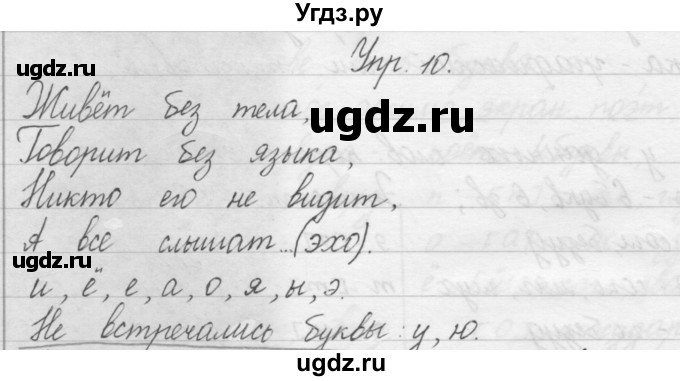 Угдз.ру
Упр. 10.
ugdz.ru
Живёт без тела,
ugdz.ru
Говорит без языка,
Никто его не видит,
А все слышат...(эхо).
ugdz.ru
и, ё, е, а, о, я, ы, э.
Не встречались буквы: у, ю.
ugdz.ru